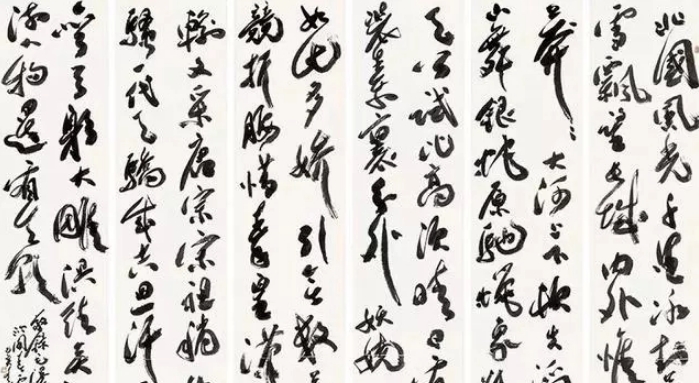 北國風光千里冰封
雪飄望長城內外惟
莽莽大河上下頓失滔
山舞銀蛇原馳蠟象
與天公試比高須晴日看
裝素裹分外妖嬈
如此多嬌引無數
競折腰惜秦皇漢
輸文采唐宗宋祖稍
騷一代天驕成吉思汗
彎弓射大雕俱往矣
流人物還看今朝